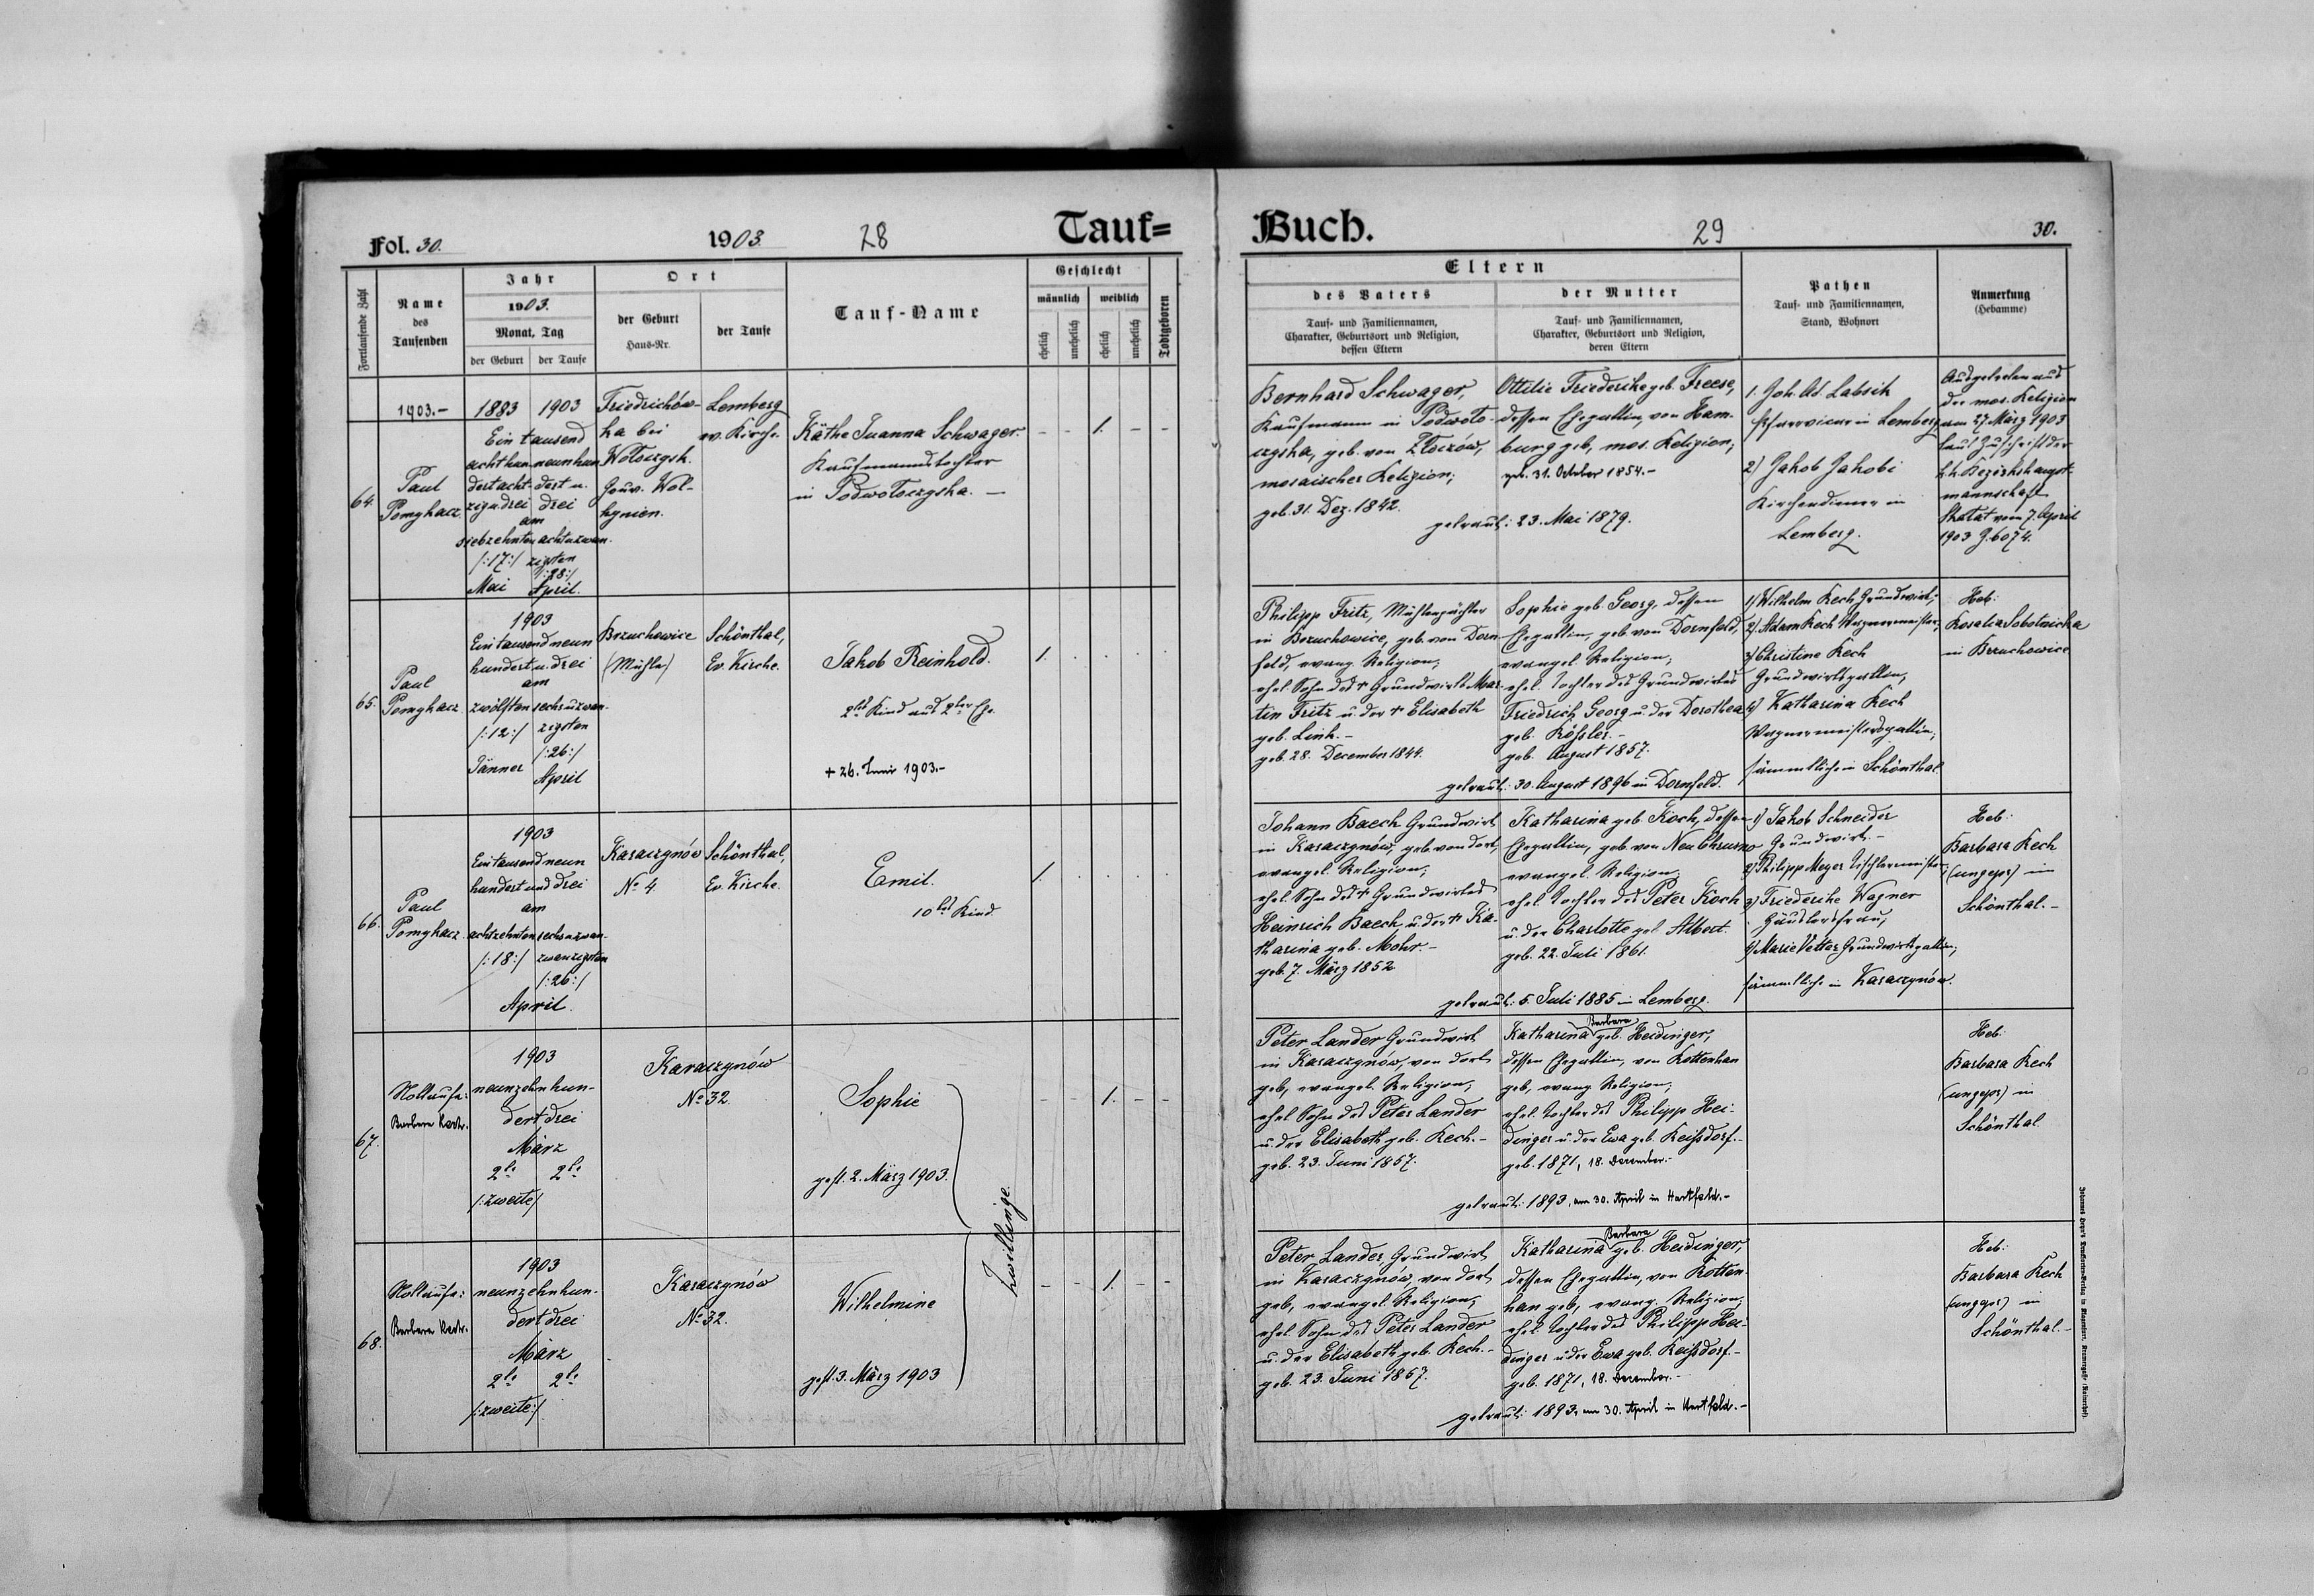 Fol. 30.
1903.
28
Tauf=
Fortlaufende Zahl
Name
des
Taufenden
Jahr
1903.
Monat, Tag
der Geburt
der Taufe
Ort
der Geburt
Haus-Nr.
der Taufe
Tauf-Name
Geschlecht
männlich
weiblich
ehelich
unehelich
ehelich
unehelich
Todtgeboren
64.
1903.-
Paul
Pomykacz.
1883 1903
Ein tausend
achthun- neunhun
dert acht- dert u.
zig u. drei drei
am
siebzehnten achtuzwan-
/:17:/ zigsten
/:28:/
Mai April.
Friedrichów-
ka bei
Woloczysk.
Gouv. Wol-
hynien.
Lemberg
ev. Kirche.
Käthe Juanna Schwager.
Kaufmannstochter
in Podwołoczyska. —
- - 1. - -
65.
Paul
Pomykacz
1903
Ein tausend neun
hundert u. drei
am
zwölften sechsuzwan-
/:12:/ zigsten
/:26:/
Jänner April
Brzuchowice
(Mühle)
Schönthal,
Ev. Kirche.
Jakob Reinhold.
2tes Kind aus 2ter Ehe.
+ 26. Juni 1903.-
1.
66.
Paul
Pomykacz.
1903
Ein tausend neun
hundert und drei
am
achtzehnten sechsuzwan-
/:18:/ zwanzigsten
/:26:/
April.
Karaczynów
No 4.
Schönthal,
Ev. Kirche.
Emil.
10tes Kind.
1.
67.
Nottaufe:
Barbara Kech.
1903
neunzehnhun-
dert drei
März
2te 2te
/:zweite/
Karaczynów
No 32.
Sophie
gest. 2. März 1903.
Zwillinge.
- - 1. - -
68.
Nottaufe:
Barbara Kech.
1903
neunzehnhun-
dert drei
März
2te 2te
/:zweite:/
Karaczynów
No 32.
Wilhelmine
gest. 3. März 1903
- - 1. - -
Buch.
29
30.
Eltern
des Vaters
Tauf- und Familiennamen,
Charakter, Geburtsort und Religion,
dessen Eltern
der Mutter
Tauf- und Familiennamen,
Charakter, Geburtsort und Religion,
deren Eltern
Pathen
Tauf- und Familiennamen,
Stand, Wohnort
Anmerkung
(Hebamme)
Bernhard Schwager,
Kaufmann in Podwoło-
czyska, geb. von Złoczów,
mosaischer Religion;
geb. 31. Dez. 1842.
Ottilie Friederike geb. Freese,
dessen Ehegattin, von Ham-
burg geb, mos. Religion;
geb. 31. October 1854.-
getraut: 23. Mai 1879.
1. Joh. Ad. Labsik
Pfarrvicar in Lemberg
2) Jakob Jakobi
Kirchendiener in
Lemberg.
Ausgetreten aus
der mos. Religion
am 27. März 1903
laut Zuschrift der
k.k. Bezirkshaupt-
mannschaft
Skałat vom 7. April
1903 Z. 6074.
Philipp Fritz, Mühlenpächter
in Brzuchowice, geb. von Dorn-
feld, evang. Religion;
ehel. Sohn des + Grundwirts Mar-
tin Fritz u. der + Elisabeth
geb. Link.-
geb. 28. December 1844.
Sophie geb. Georg, dessen
Ehegattin, geb. von Dornfeld,
evangel. Religion;
ehel. Tochter des Grundwirtes
Friedrich Georg u. der Dorothea
geb. Rößler.-
geb. August 1857.
getraut: 30. August 1896 in Dornfeld.
1) Wilhelm Kech Grundwirt;
2) Adam Kech Wagnermeister;
3) Christine Kech
Grundwirtsgattin,
4) Katharina Kech
Wagnermeistersgattin;
sämmtliche in Schönthal.
Heb:
Rosalia Sobotnicka
in Brzuchowice
Johann Baech Grundwirt
in Karaczynów, geb. von dort,
evangel. Religion;
ehel. Sohn des + Grundwirtes
Heinrich Baech u. der + Ka-
tharina geb. Mohr.-
geb. 7. März 1852
Katharina geb. Koch, dessen
Ehegattin, geb. von Neu Chrusno
evangel. Religion;
ehel. Tochter des Peter Koch
u. der Charlotte geb. Albert.
geb. 22. Juli 1861.
getraut: 5. Juli 1885 in Lemberg.
1) Jakob Schneider
Grundwirt.-
2) Philipp Meyer Tischlermeister
3) Friederike Wagner
Häuslersfrau;
4) Marie Vetter Grundwirtsgattin;
sämmtliche in Karaczynów.
Heb:
Barbara Kech
(ungepr) in
Schönthal.-
Peter Lander Grundwirt
in Karaczynów, von dort
geb, evangel. Religion,
ehel. Sohn des Peter Lander
u. der Elisabeth geb. Kech.-
geb. 23. Juni 1857.
Barbara
Katharina geb. Heidinger,
dessen Ehegattin, von Rottenhan
geb, evang. Religion;
ehel. Tochter des Philipp Hei-
dinger u. der Ewa geb. Reißdorf.-
geb. 1871, 18. Dezember.-
getraut: 1893, am 30. April in Hartfeld.-
Heb:
Barbara Kech
(ungepr) in
Schönthal
Peter Lander, Grundwirt
in Karaczynów, von dort
geb, evangel. Religion;
ehel. Sohn des Peter Lander
u. der Elisabeth geb. Kech.-
geb. 23. Juni 1857.
Barbara
Katharina geb. Heidinger,
dessen Ehegattin, von Rotten-
han geb, evang. Religion,
ehel. Tochter des Philipp Hei-
dinger u. der Ewa geb. Reißdorf.-
geb. 1871, 18. Dezember.-
getraut: 1893, am 30. April in Hartfeld.-
Heb:
Barbara Kech
(ungepr) in
Schönthal.-